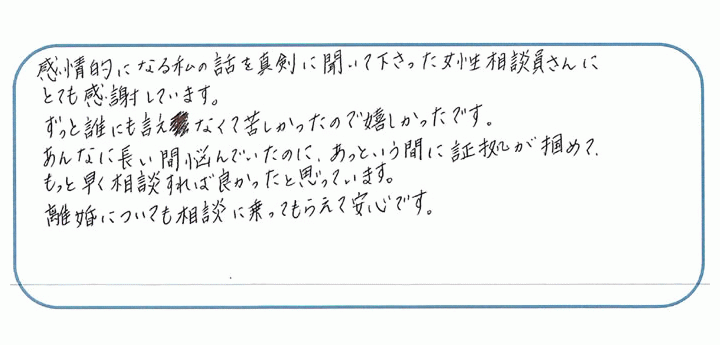 感情的になる私の話を真剣に聞いて下さった女性相談員さんに
とても感謝しています。
ずっと誰にも言えなくて苦しかったので嬉しかったです。
あんなに長い間悩んでいたのに、あっという間に証拠が掴めて、
もっと早く相談すれば良かったと思っています。
離婚についても相談に乗ってもらえて安心です。